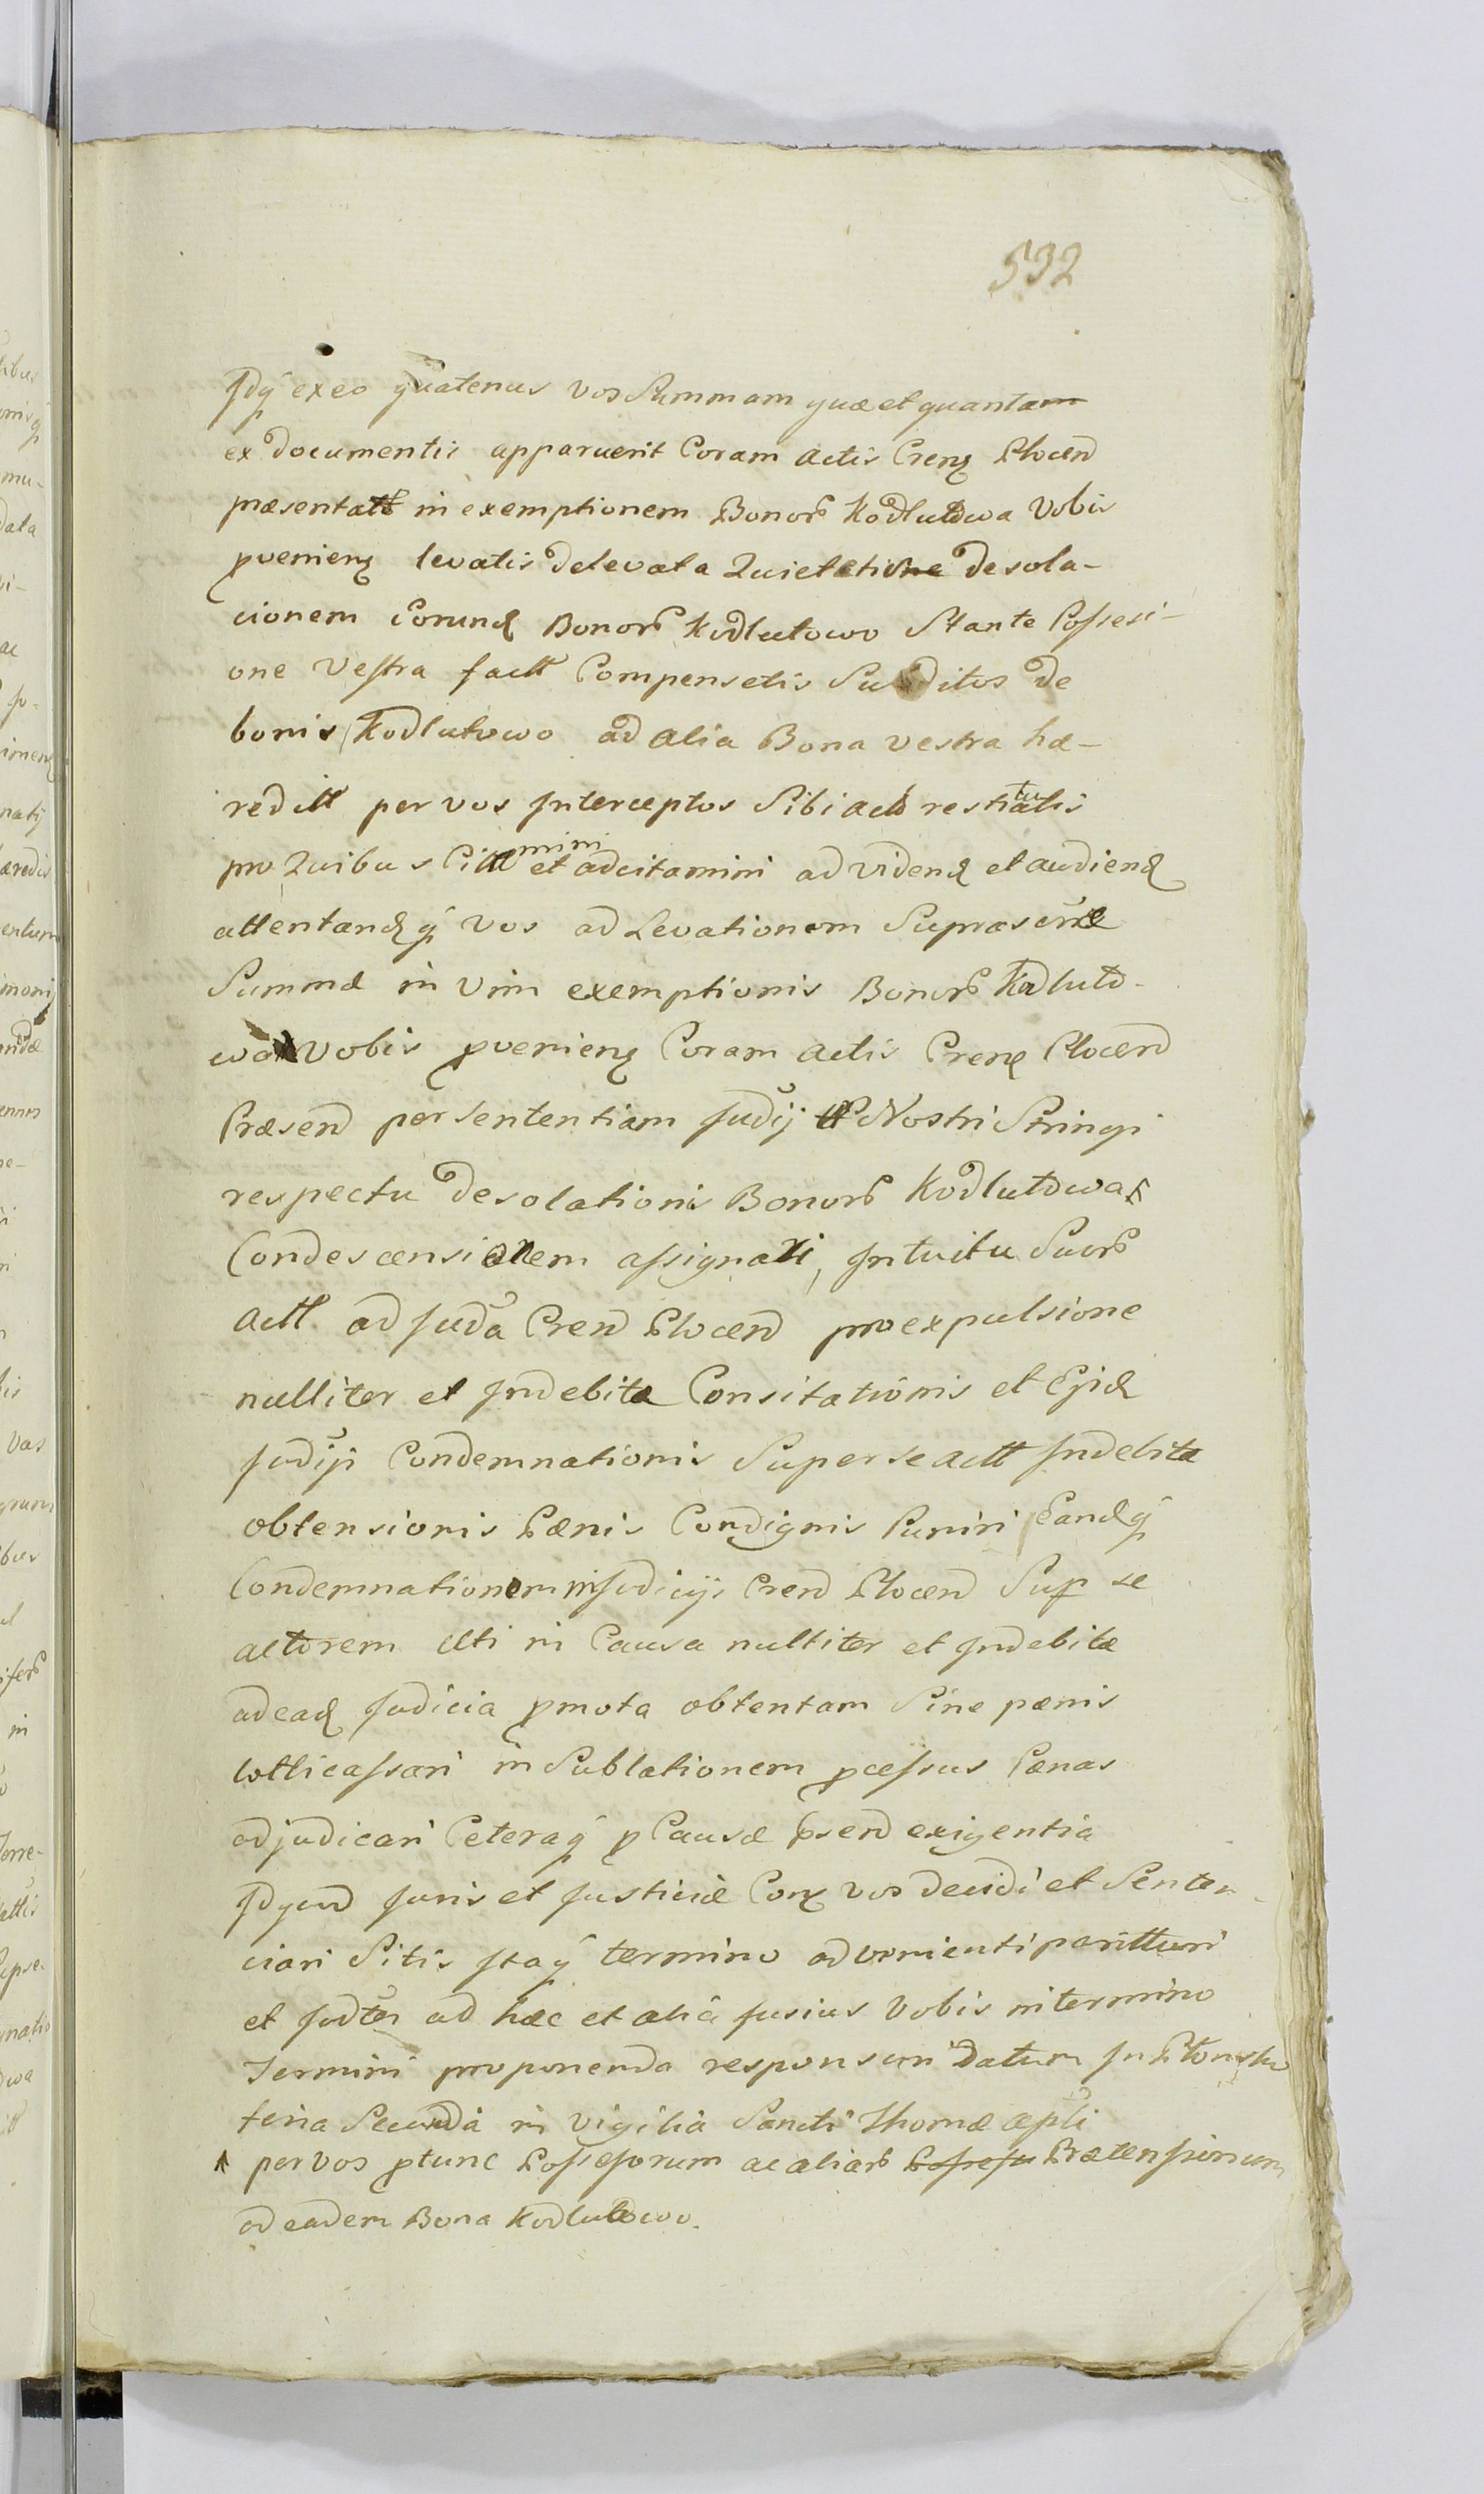 532
Idq ex eo quatenus vos Summam quae et quantam
ex documentis apparuerit Coram actis Crenz Plocen
praesentatt in exemptionem Bonor Kodlutowa Vobis
pvenienz levatis delevata Quietatione desola-
cionem Eorund Bonor Kodlutowo Stante Possesi-
one Vestra factt Compensetis Subditos de
bonis Kodlutowo ad alia Bona vestra hae-
reditt per vos Interceptos Sibi acto restituatis
pro Quibus Citt mini et adcitamini ad vidend et audiend
attentandq vos ad Levationem Suprascrae
Summae in Vim exemptionis Bonor Kodluto-
wo Vobis pvenienz Coram actis Crenz Plocen
Praesen per sententiam Judij Nostri Stringi
respectu desolationis Bonor Kodlutowa
Condescensionem assignari, Intuitu Suor
actt ad Juda Cren Plocen pro expulsione
nulliter et Indebita Consitationis et Ejid
Judiji Condemnationis Super se actt Indebita
obtensionis Paenis Condignis Puniri Eandq
Condemnationem in Judicijs Cren Plocen Sup se
actorem Uti in Causa nulliter et Indebitae
ad ead Judicia pmota obtentam Sine paenis
cassari in Sublationem pcessus Paenas
adjudicari Ceteraq p Causae psen exigentia
Idquod Juris et Justiciae Conz vos decidi et Senten-
ciari Sitis Itaq termino advenienti paritturi
et Judter ad haec et alia fusius Vobis in termino
Termini proponenda responsuri Datum In Plonsko
feria Secunda in Vigilia Sancti Thomae apli
per vos ptunc Possessorum ac aliar Possessu Praetensionum
ad eadem Bona Kodlutowo.